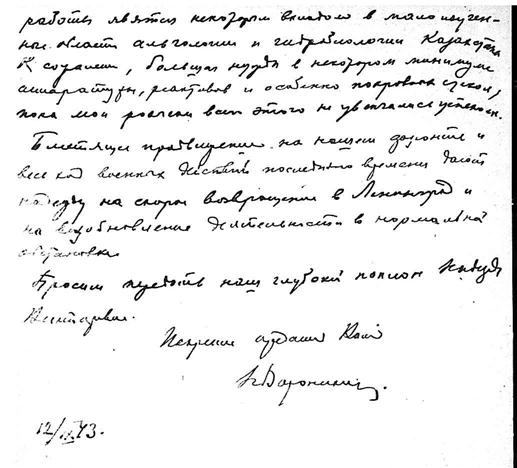 работы явятся некоторым вкладом в мало изучен-
ные области альгологии и гидробиологии Казахстана
К сожалению, большая нужда в некотором минимуме
аппаратуры, реактивов и особенно покровных стекол,
пока мои розыски всего этого не увенчались успехом.
Блестящее продвижение на нашем фронте и
весь ход военных действий последнего времени дают
надежду на скорое возвращение в Ленинград и
на возобновление деятельности в нормальной
обстановке.
Просим передать наш глубокий поклон
Викторовне.
Искренне преданный Вам
Н Воронихин
12/ 43.